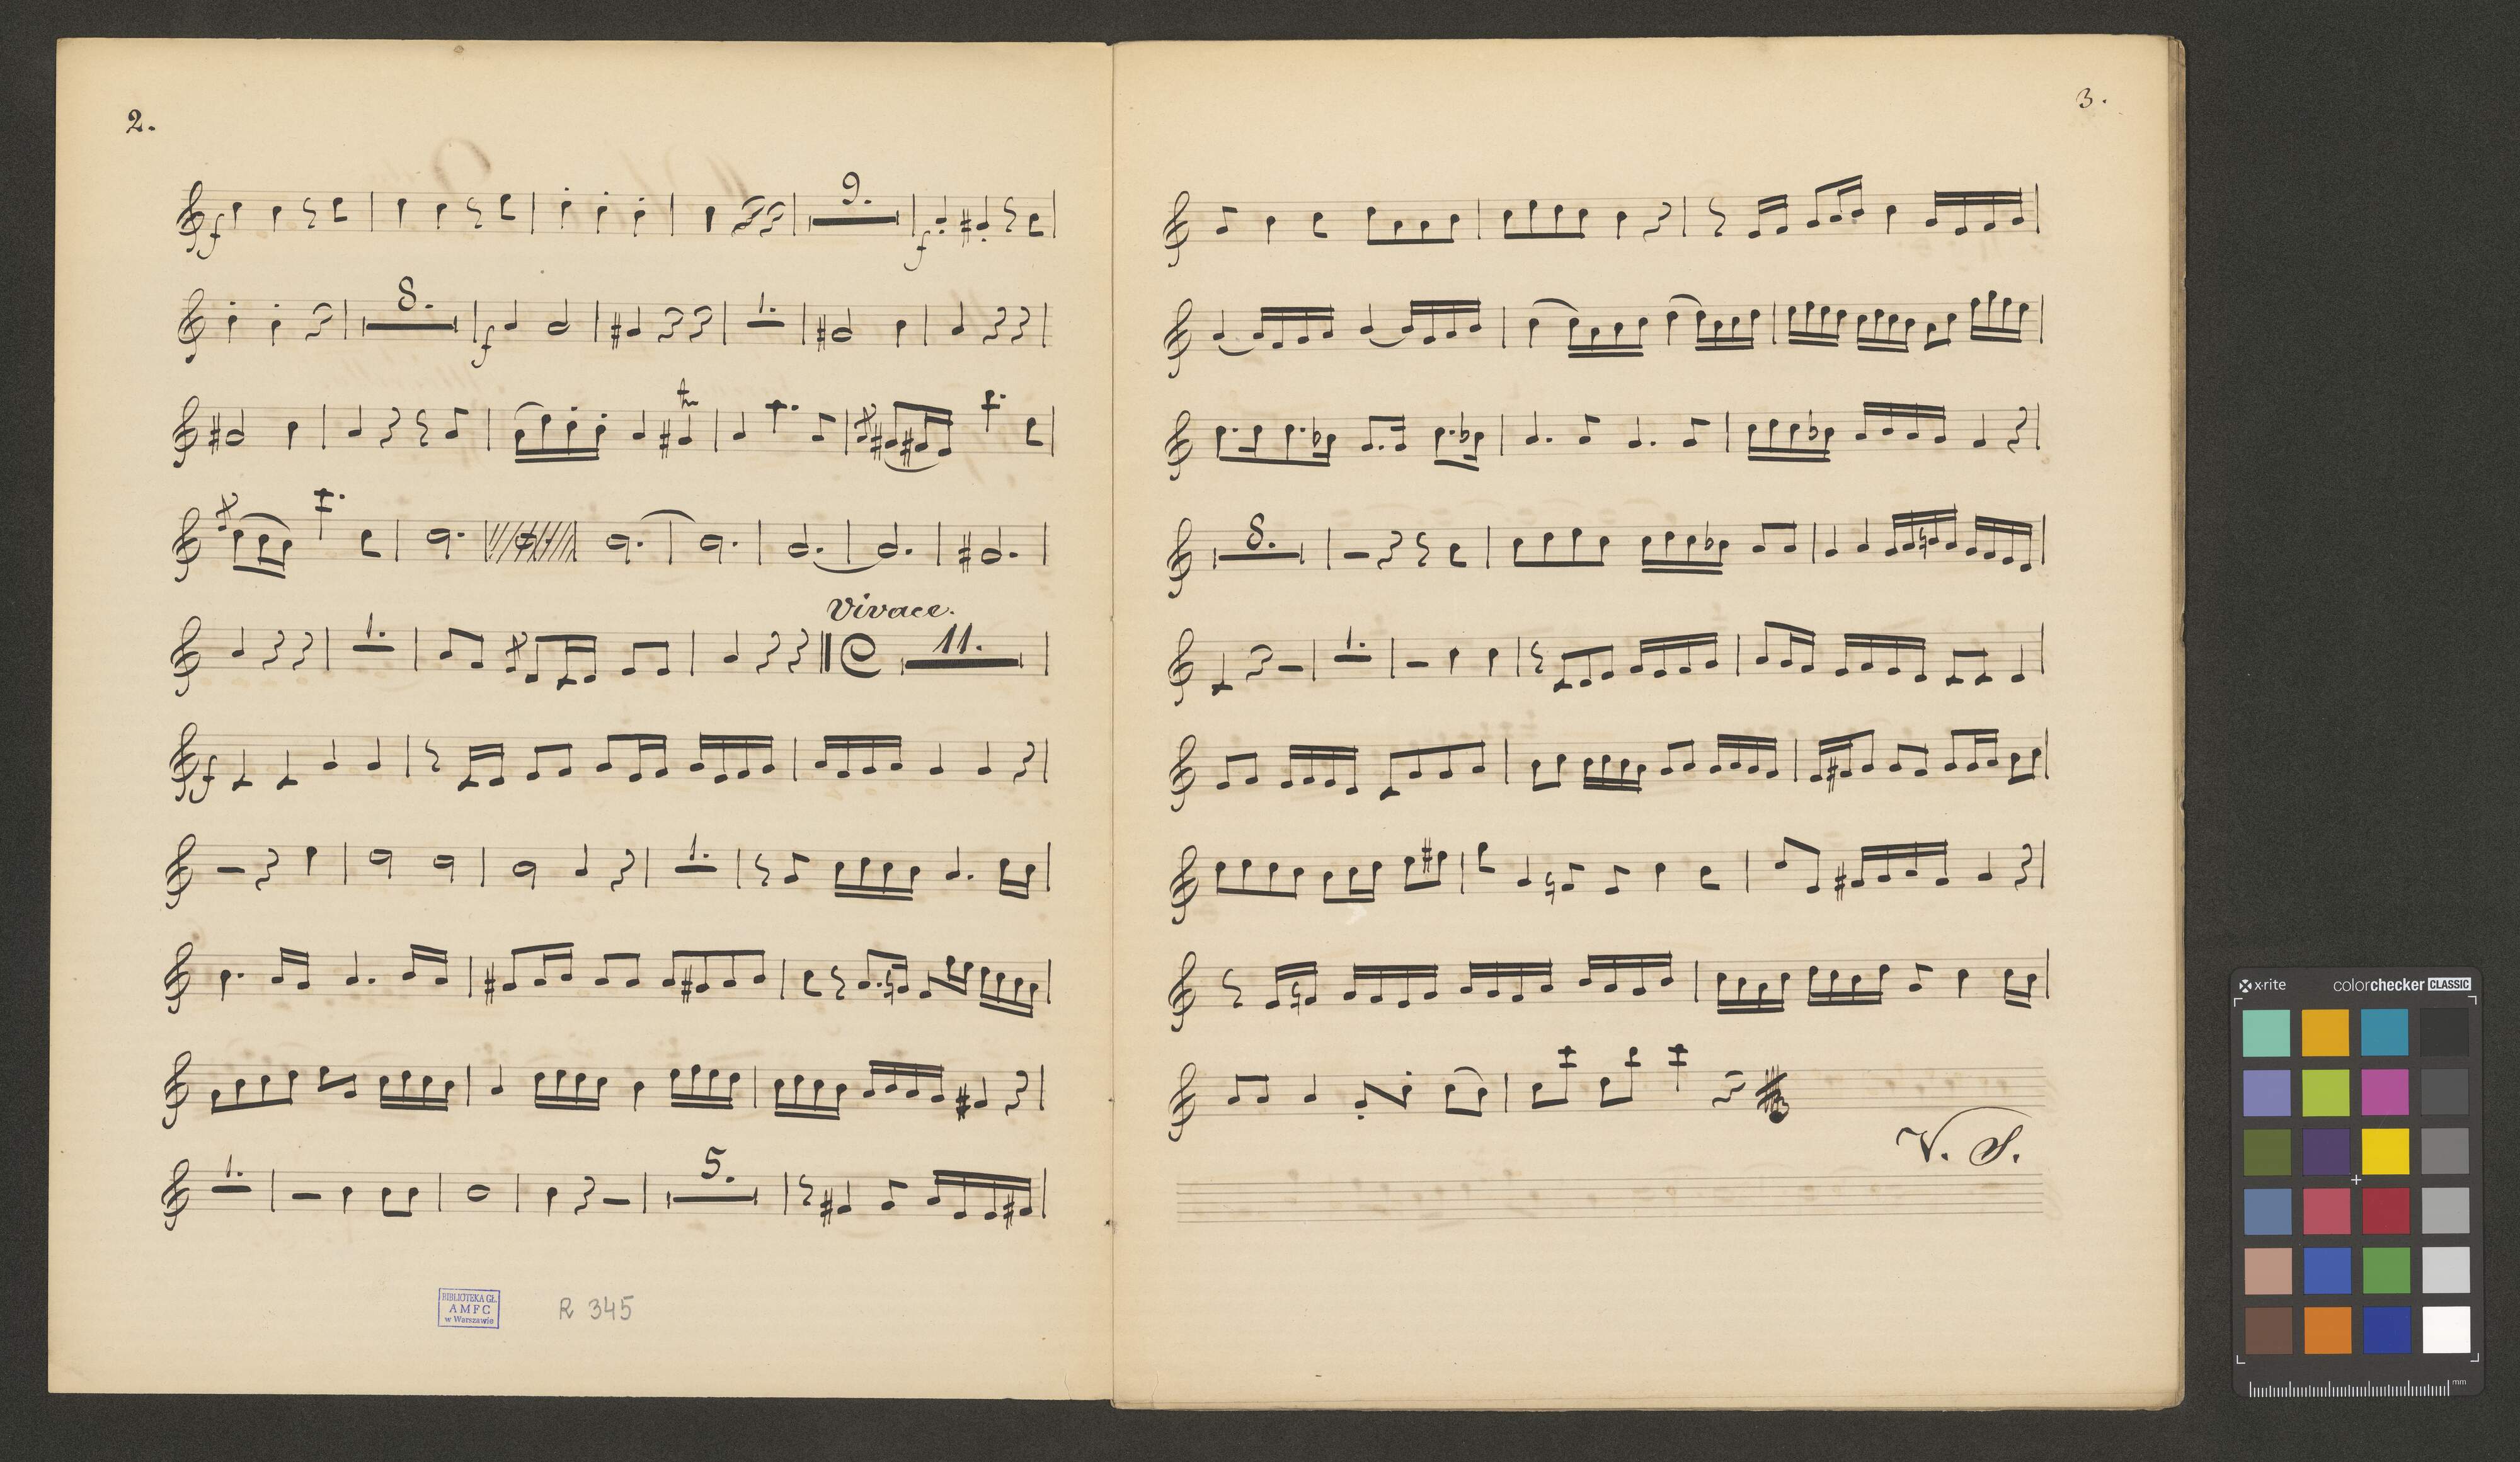 2.
f 9. f
8. f 1.
tr
Vivace.
1. 11.
f
1.
1. 5.
BIBLIOTEKA GŁ.
AMFC
w Warszawie
R 345
3.
8.
1.
V. S.
x·rite colorchecker CLASSIC
mm